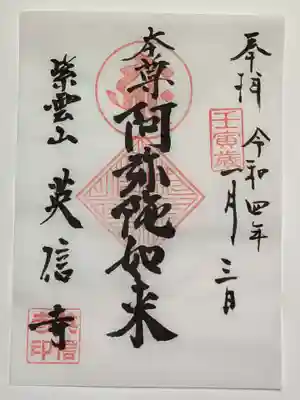 奉拝 令和四年
壬寅歳
一月三日
本尊 阿弥陀如来
紫雲山 英信寺